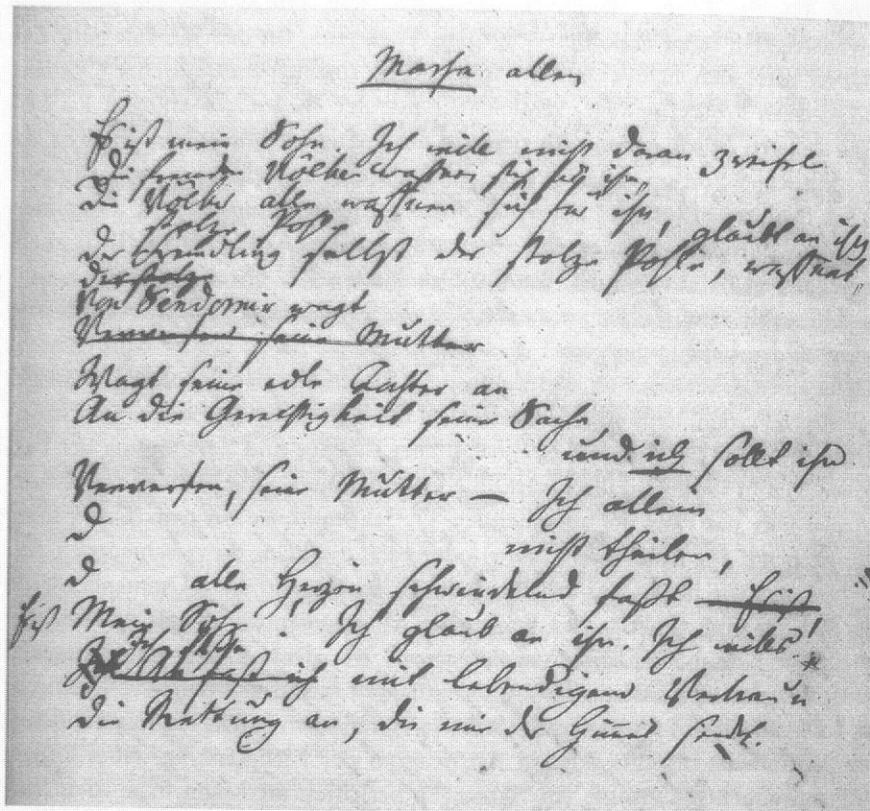 Marfa allein
Es ist mein Sohn. Ich will nicht daran zweifel
Die fremden Völker waffnen sich für ihn,
Die Völker alle waffnen sich für ihn,
stolze Pohle glaubt an ihn
Der Fremdling selbst der stolze Pohle, waffnet,
Der stolze
Von Sendomir wagt
Verwerfen seine Mutter
Wagt seine edle Tochter an
An die Gerechtigkeit seiner Sache
und ich sollt ihn
Verwerfen, seine Mutter — Ich allein
D
nicht theilen,
D alle Herzen schwindelnd faßt — Er ist
Er ist Mein Sohn! Ich glaub an ihn. Ich wills.
Ich fasse
ich mit lebendigem Vertraun
Die Rettung an, die mir der Himel sendet.